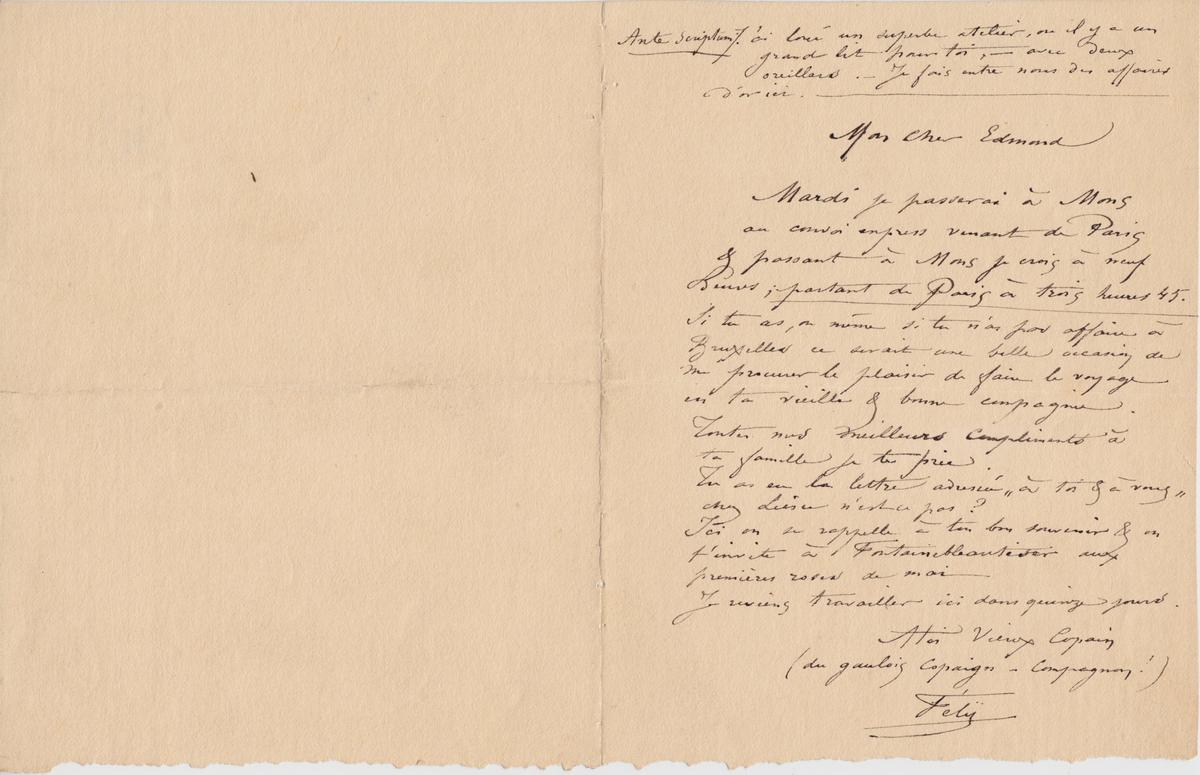 Ante Scriptum J'ai loué un superbe atelier, ou il y a un
grand lit pour toi, — avec deux
oreillers. — Je fais entre nous des affaires
d'or ici.
Mon cher Edmond
Mardi je passerai à Mons
au convoi express venant de Paris
& passant à Mons je crois à neuf
heures, partant de Paris à trois heures 45.
Si tu as, ou même si tu n'as pas affaire à
Bruxelles ce serait une belle occasion de
me procurer le plaisir de faire le voyage
en ta vieille & bonne compagnie.
Toutes nos meilleurs compliments à
ta famille je te prie.
Tu as eu la lettre adressée „à toi & à vous„
chez n'est-ce pas ?
Ici on se rappelle à ton bon souvenir & on
t'invite à Fontainebleautiser aux
premières roses de mai —
Je reviens travailler ici dans quinze jours.
A toi Vieux Copain
(du gaulois Copaign — Compagnon !)
Fély